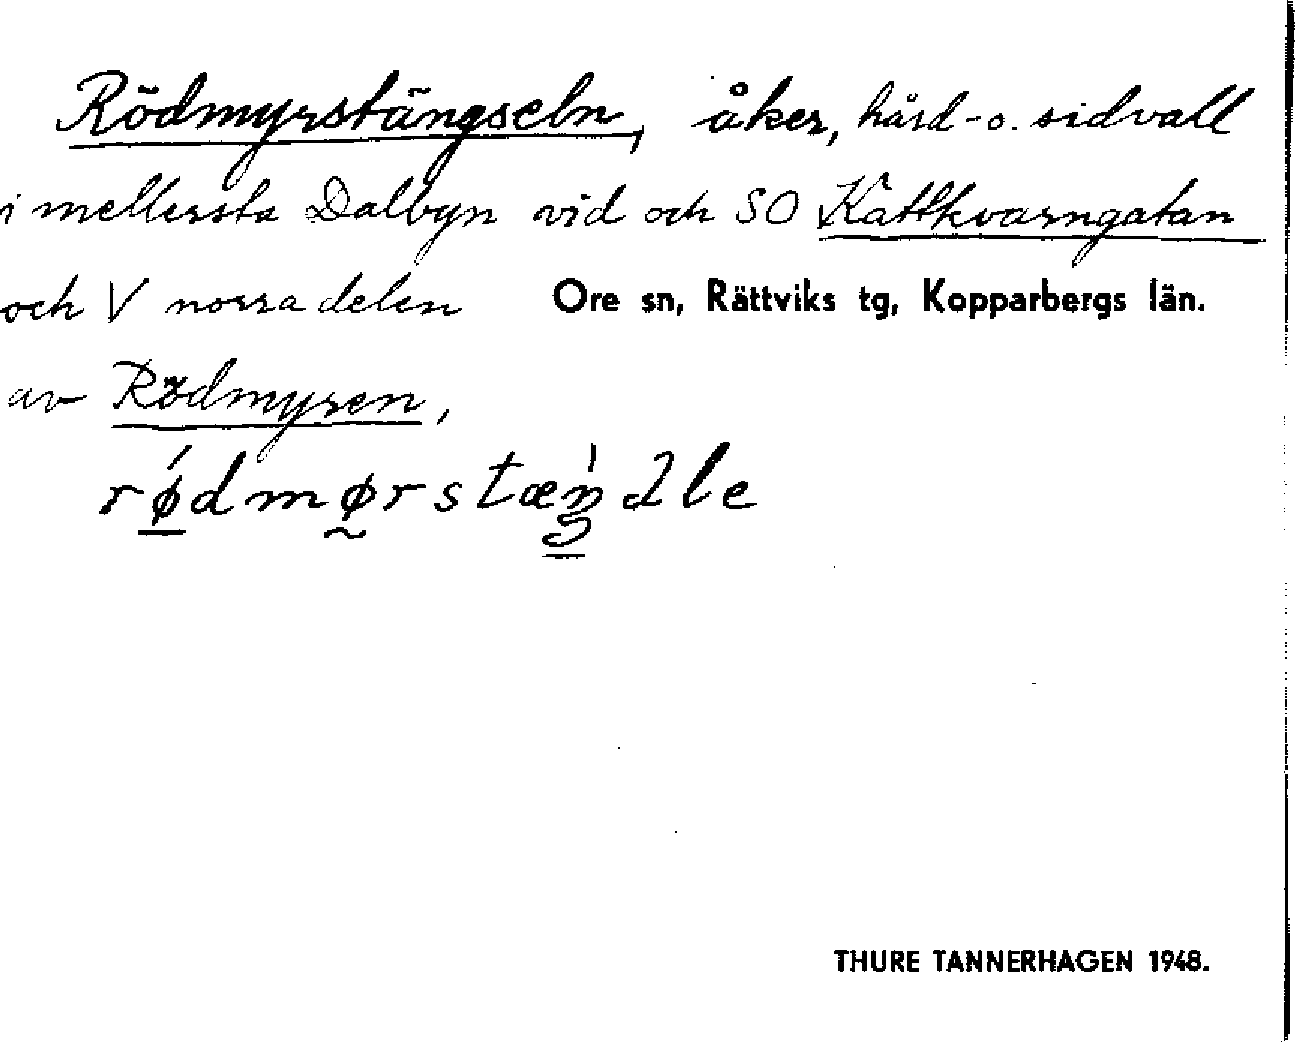 Rödmyrstängseln, åker, hård- o. sidvall
i mellersta Dalbyn vid och SO Kattkvarngatan
och V norra delen Ore sn, Rättviks tg, Kopparbergs län.
av Rödmyren,
THURE TANNERHAGEN 1948.